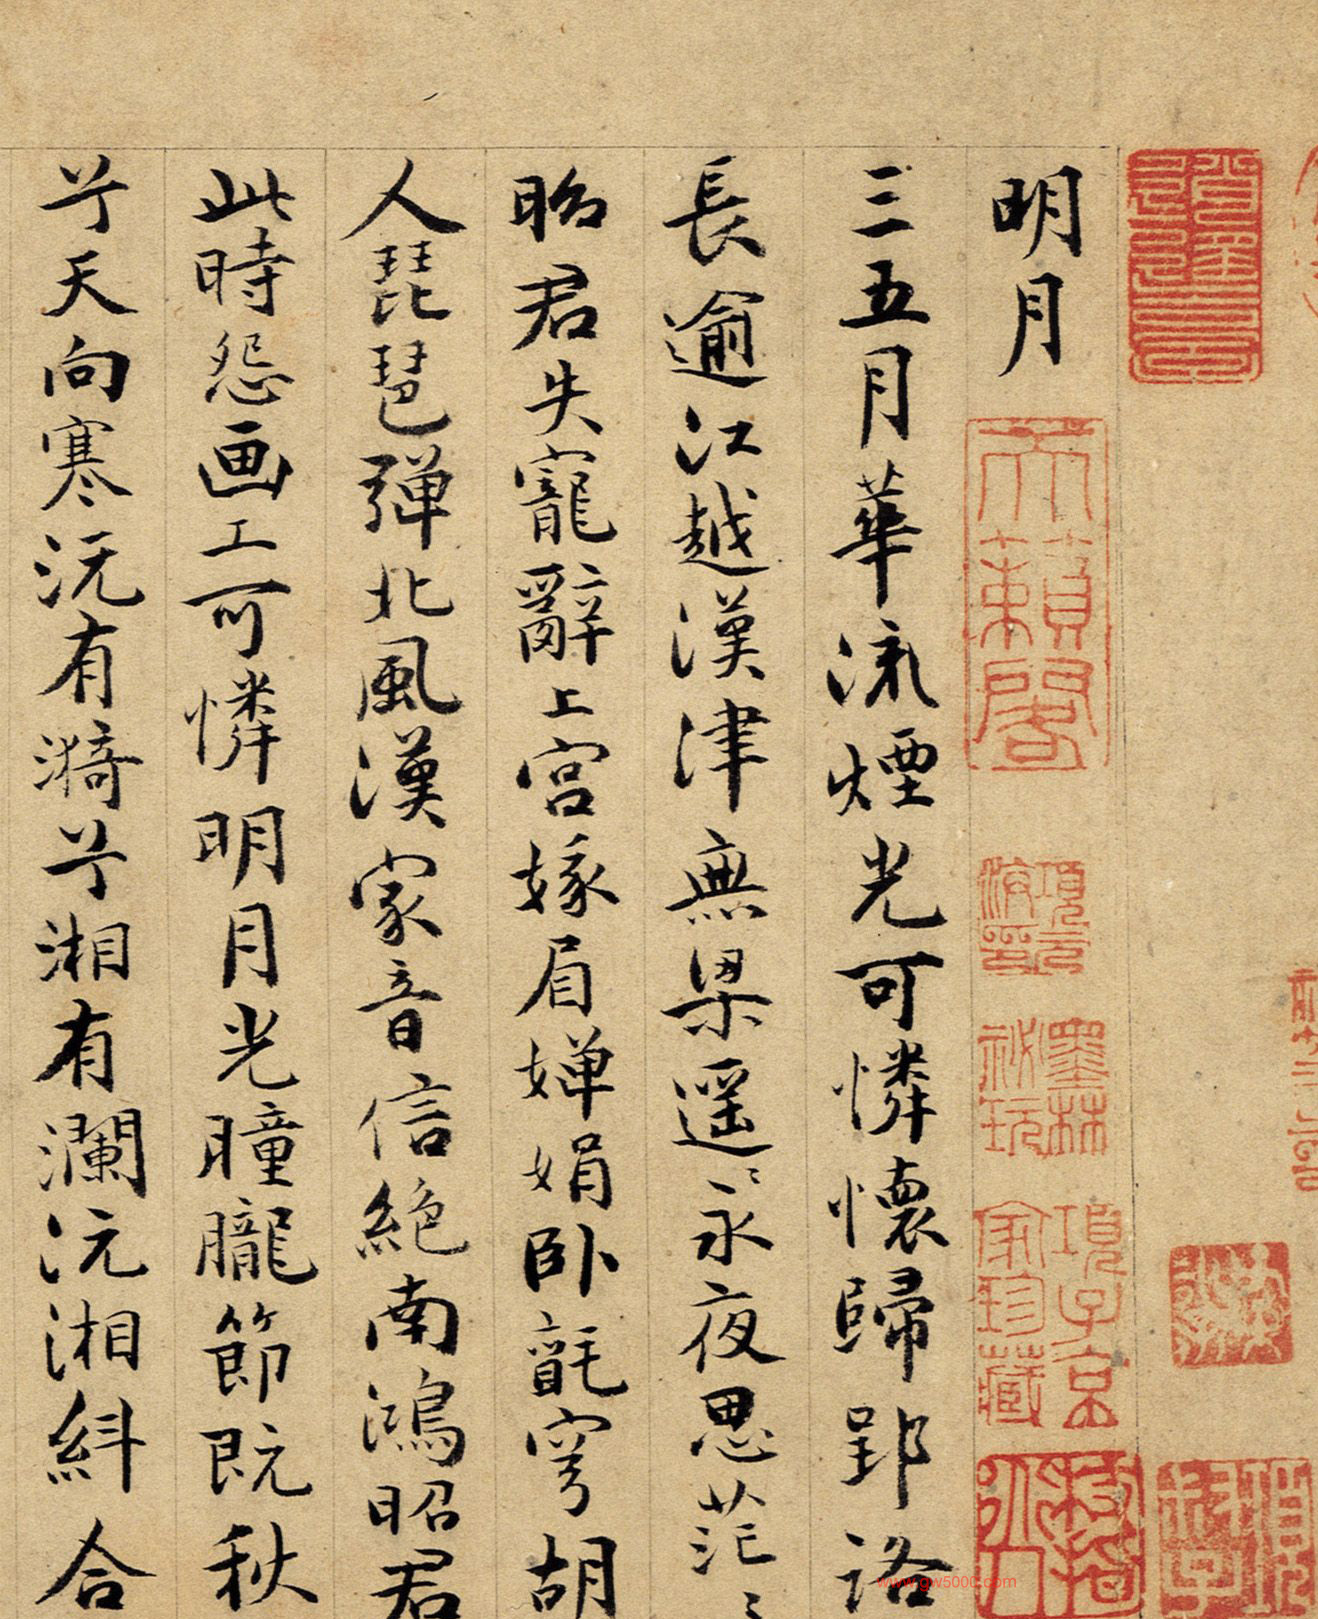 明月
三五月華流煙光可憐懷歸郢路
長逾江越漢津無梁遥〻永夜思茫〻
昭君失寵辭上宮嫁眉嬋娟卧氈穹胡
人琵琶彈北風漢家音信絶南鴻昭君
此時怨画工可憐明月光曈朧節既秋
兮天向寒沅有漪兮湘有瀾沅湘糾合
項子京家珍藏
墨林祕玩
www.gw5000.com